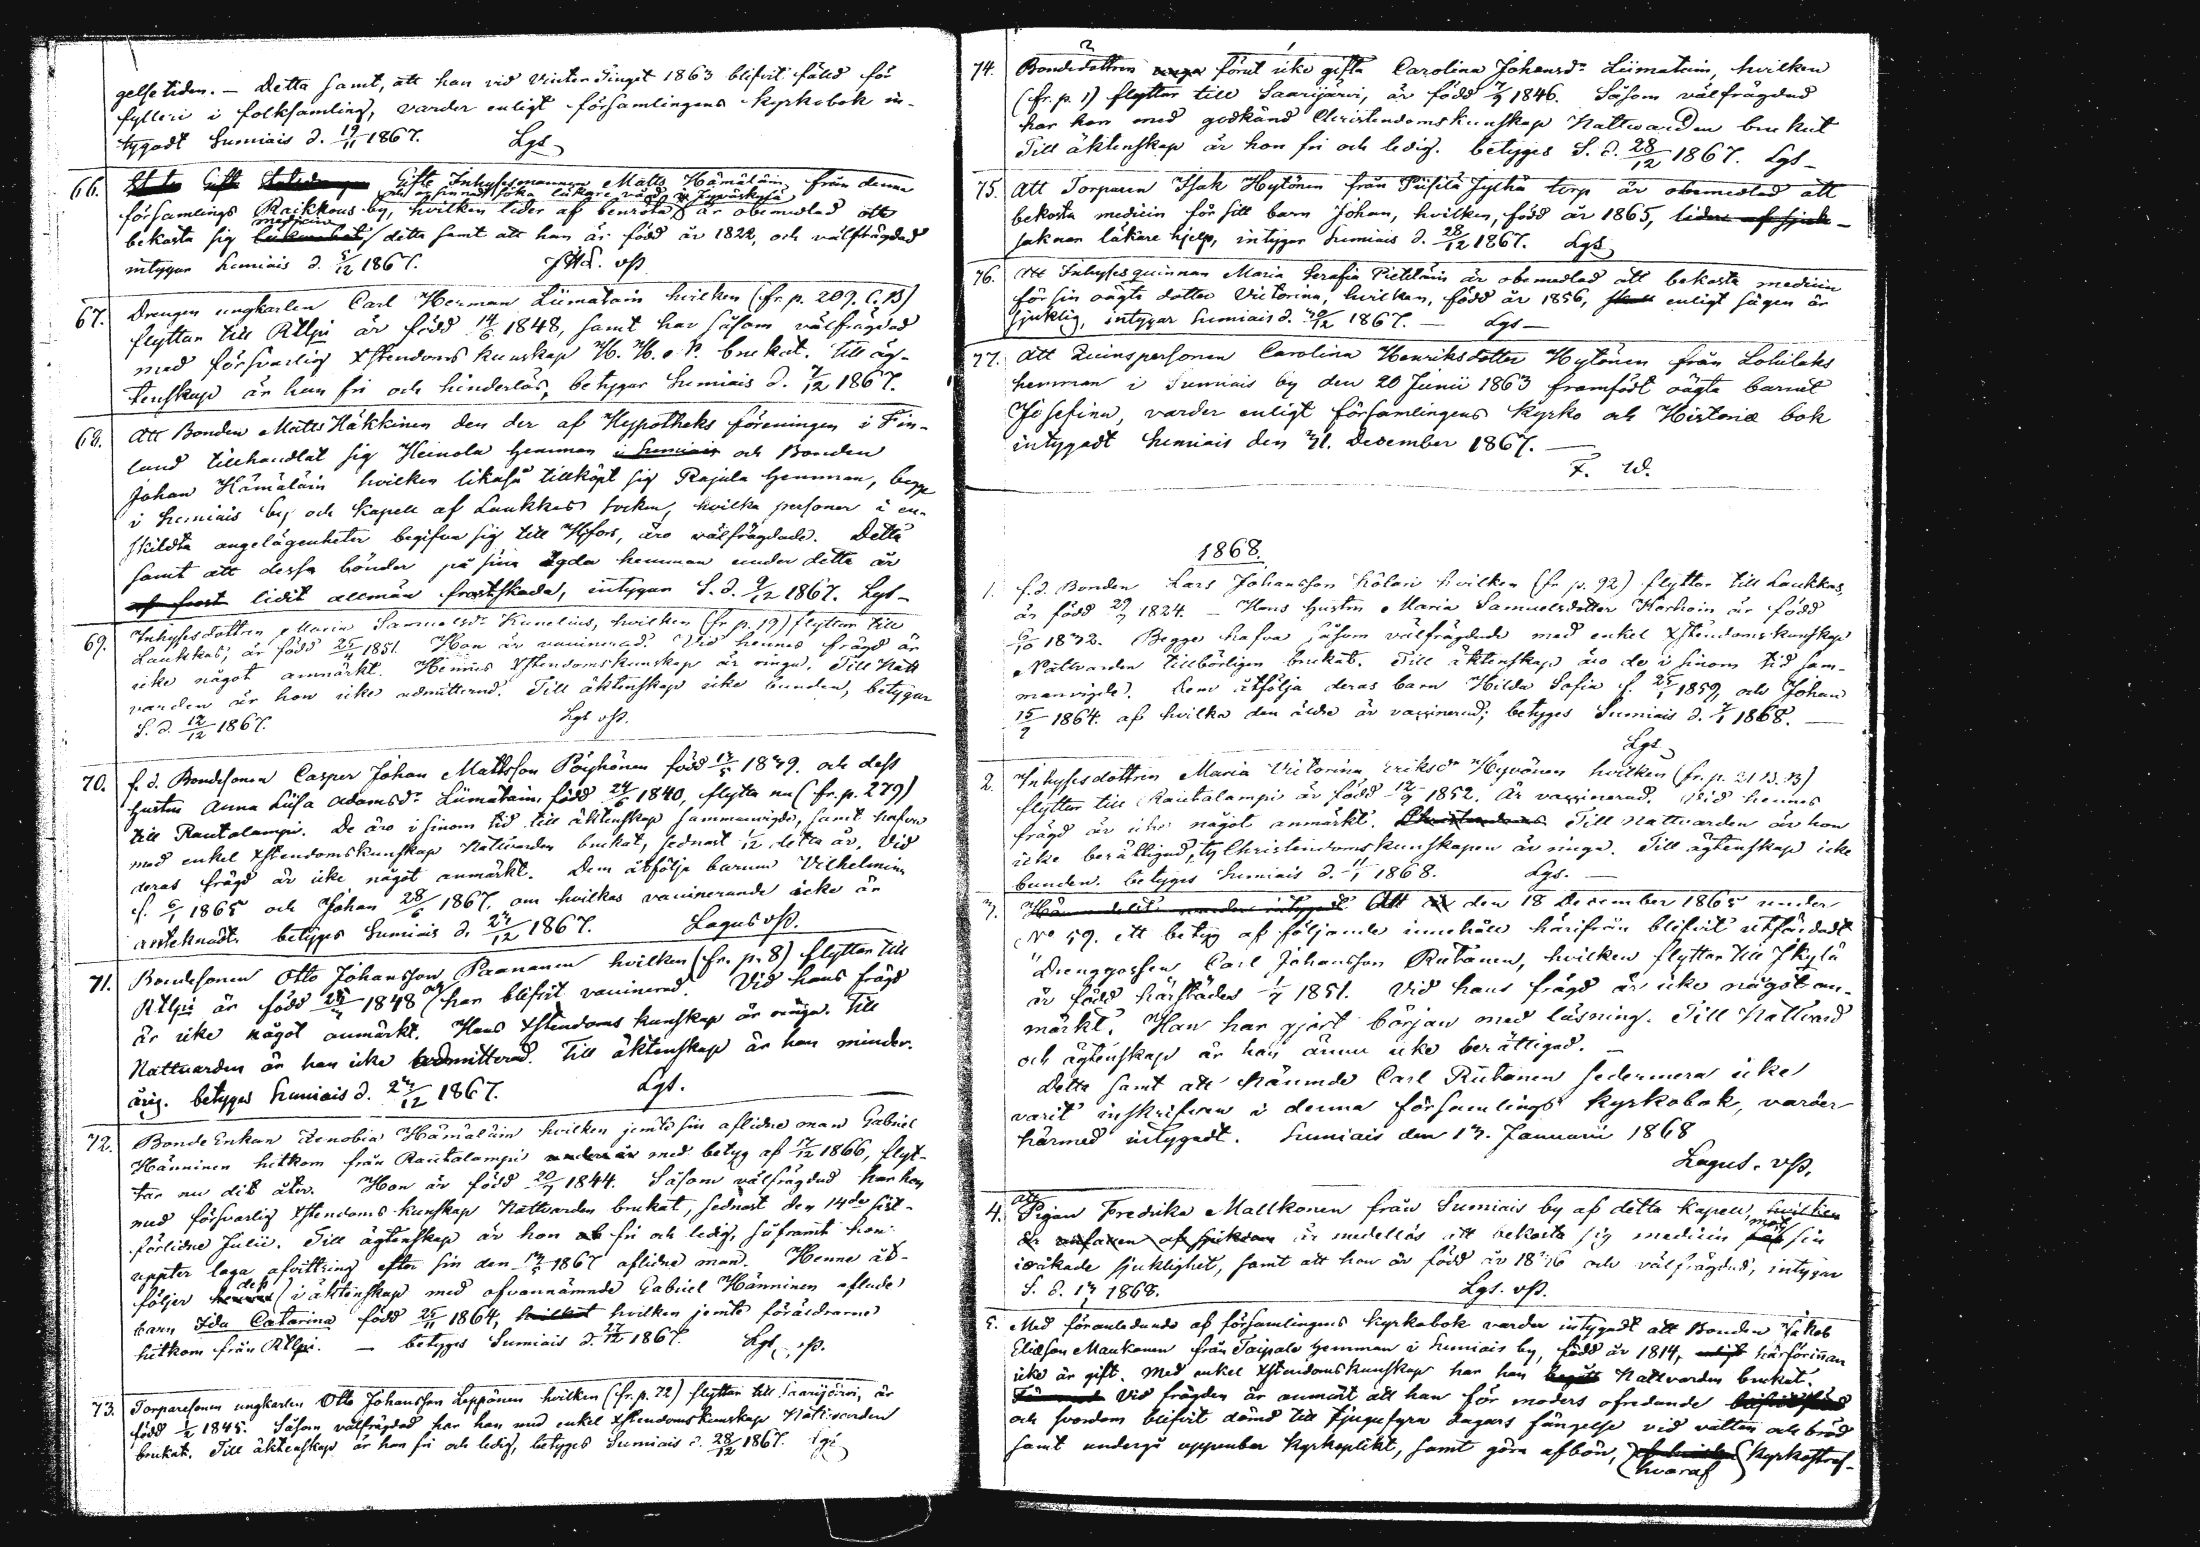 gelse tiden. – Detta samt, att han vid Vinter Tinget 1863 blifvit fälld för
fylleri i folksamling, varder enligt församlingens Kyrkobok in-
tygadt Sumiais d. 19/11 1867. Lgs
66. Gifte Inhysesmannen Matts Hämäläin från denna
att för sin råd söka läkare vård i Jyväskylä
församlings Raikkous by, hvilken lider af benröta är obemedlad att
medicin
bekosta sig detta samt att han är född år 1822, och välfrägdad
intygar Sumiais d. 5/12 1867. vP.
67. Drengen ungkarlen Carl Herman Liimatain hvilken (fr. p. 209. C. B)
flyttar till Rtlpi är född 14/6 1848, samt har såsom välfrägdad
med försvarlig Xstendoms kunskap H. H. o. N. brukat. Till äg-
tenskap är han fri och hinderlös, betygar Sumiais d. 7/12 1867.
68. Att Bonden Matts Häkkinen den der af Hypotheks föreningen i Fin-
land tillhandlat sig Heinola hemman i Sumiais och Bonden
Johan Hämäläin hvilken likaså tillköpt sig Rajala hemman, begge
i Sumiais by och Kapell af Laukkas socken, hvilka personer i en-
skildta angelägenheter begifva sig till Hfors, äro välfrägdade. Detta
samt att dessa bönder på sina ägda hemman under detta år
af frost lidit allmän frostskada, intygar S. d. 9/12 1867. Lgs –
69. Inhyses dottren Maria Samuelsdr Kunelius, hvilken (fr p. 19) flyttar till
Laukkas, är född 25/4 1851. Hon är vaccinerad. Vid hennes frägd är
icke något anmärkt. Hennes Xstendomskunskap är ringa. Till Natt
varden är hon icke admitterad. Till äktenskap icke bunden, betygar
S. d. 12/12 1867. Lgs vP.
70. f. d. Bondesonen Casper Johan Mattsson Pöyhönen född 13/5 1839. och dess
hustru Anna Lisa Adamsdr Liimatain, född 24/6 1840, flytta nu (fr. p. 279)
till Rautalampi. De äro i sinom tid till äktenskap sammanvigde, samt hafva
med enkel Xstendomskunskap Nattvarden brukat, sednast 1/12 detta år. Vid
deras frägd är icke något anmärkt. Dem åtfölja barnen Vilhelmina
f. 6/1 1865 och Johan 28/6 1867, om hvilkas vaccinerande icke är
antecknadt. betyges Sumiais d. 23/12 1867. Lagus vP.
71. Bondesonen Otto Johansson Paananen hvilken (fr. p. 8) flyttar till
Rtlpi är född 1848 och har blifvit vaccinerad. Vid hans frägd
är icke något anmärkt. Hans Xstendoms kunskap är ringa. Till
Nattvarden är han icke admitterad. Till äktenskap är han minder-
årig. betyges Sumiais d. 23/12 1867. Lgs.
72. Bonde Enkan Zenobia Hämäläin hvilken jemte sin aflidne man Gabriel
Hänninen hitkom från Rautalampi med betyg af 13/12 1866, flyt-
tar nu dit åter. Hon är född 20/7 1844. Såsom välfrägdad har hon
med försvarlig Xstendoms kunskap Nattvarden brukat, sednast den 14de sist-
förlidne Julii. Till ägtenskap är hon fri och ledig, såframt hon
uppter laga afvittring efter sin den 13/5 1867 aflidne man. Henne åt-
följer dess i äktenskap med ofvannämnde Gabriel Hänninen aflade
barn Ida Catarina född 25/11 1864, hvilket hvilken jemte föräldrarne
hitkom från Rtlpi. – betyges Sumiais d. 27/12 1867. Lgs vP.
73. Torparesonen ungkarlen Otto Johansson Leppänen hvilken (fr. p. 72) flyttar till Saarijärvi, är
född 1/2 1845. Såsom välfrägdad har han med enkel Xstendomskunskap Nattvarden
brukat. Till äktenskap är han fri och ledig, betyges Sumiais d. 28/12 1867. Lgs
74. Bondedottren förut icke gifta Carolina Johansdr Liimatain, hvilken
(fr. p. 1) flyttar till Saarijärvi, är född 7/9 1846. Såsom välfrägdad
har hon med godkänd Christendomskunskap Nattvarden brukat
Till äktenskap är hon fri och ledig. betyges S. d. 28/12 1867. Lgs –
75. Att Torparen Isak Hytönen från Piisilä Jylhä torp är obemedlad att
bekosta medicin för sitt barn Johan, hvilken, född år 1865, lider af sjuk-
saknar läkare hjelp, intygar Sumiais d. 28/12 1867. Lgs
76. Att Inhysesquinnan Maria Serafia Pietiläin är obemedlad att bekosta medicin
för sin oägta dotter Victorina, hvilken, född år 1856, enligt sägen är
sjuklig, intygar Sumiais d. 30/12 1867. – Lgs –
77. Att Qvinspersonen Carolina Henriksdotter Hytönen från Lohilahs
hemman i Sumiais by den 20 Junii 1863 framfödt oägta barnet
Josefina, varder enligt församlingens Kyrko och Historie bok
intygadt Sumiais den 31. December 1867. –
F. W.
1868.
1. f. d. Bonden Lars Johansson Kölari hvilken (fr p. 92) flyttar till Laukkas,
är född 29/3 1824. – Hans hustru Maria Samuelsdotter Korhoin är född
6/10 1832. Begge hafva såsom välfrägdade med enkel Xstendomskunskap
Nattvarden tillbörligen brukat. Till äktenskap äro de i sinom tid sam-
manvigde. Dem åtfölja deras barn Hilda Sofia f. 25/1 1859, och Johan
15/9 1864. af hvilka den äldre är vaccinerad; betyges Sumiais d. 7/1 1868. –
Lgs
2. Inhysesdottren Maria Victorina Eriksdr Hyvönen hvilken (fr. p. 213. B)
flyttar till Rautalampi är född 12/9 1852. Är vaccinerad. Vid hennes
frägd är icke något anmärkt. Christendoms Till Nattvarden är hon
icke berättigad, ty Christendomskunskapen är ringa. Till ägtenskap icke
bunden. betyges Sumiais d. 11/1 1868. Lgs. –
3. Att den 18 December 1865 under
No 59. ett betyg af följande innehåll härifrån blifvit utfärdadt
"Drenggossen Carl Johansson Rutanen, hvilken flyttar till Jkylä
är född härstädes 1/7 1851. Vid hans frägd är icke något an-
märkt. Han har gjort början med läsning. Till Nattvard
och ägtenskap är han ännu icke berättigad. –
Detta samt att nämnde Carl Rutanen sedermera icke
varit inskrifven i denna församlings Kyrkobok, varder
härmed intygadt. Sumiais den 13. Januarii 1868
Lagus. vP.
4. att Pigan Fredrika Mallkonen från Sumiais by af detta Kapell, hvilken
mot
är medellös att bekosta sig medicin för sin
iråkade sjuklighet, samt att hon är född år 1836 och välfrägdad, intygar
S. d. 13/1 1868. Lgs. vP.
5. Med föranledande af församlingens Kyrkobok varder intygadt att Bonden Jakob
Eliasson Maukonen från Taipale hemman i Sumiais by, född år 1814, härförinnan
icke är gift. Med enkel Xstendomskunskap har han Nattvarden brukat.
Vid frägden är anmält att han för moders ofredande
och svordom blifvit dömd till tjugufyra dagars fängelse vid vatten och bröd
samt undergå uppenbar Kyrkoplikt, samt göra afbön, Kyrkostraf-
hvaraf